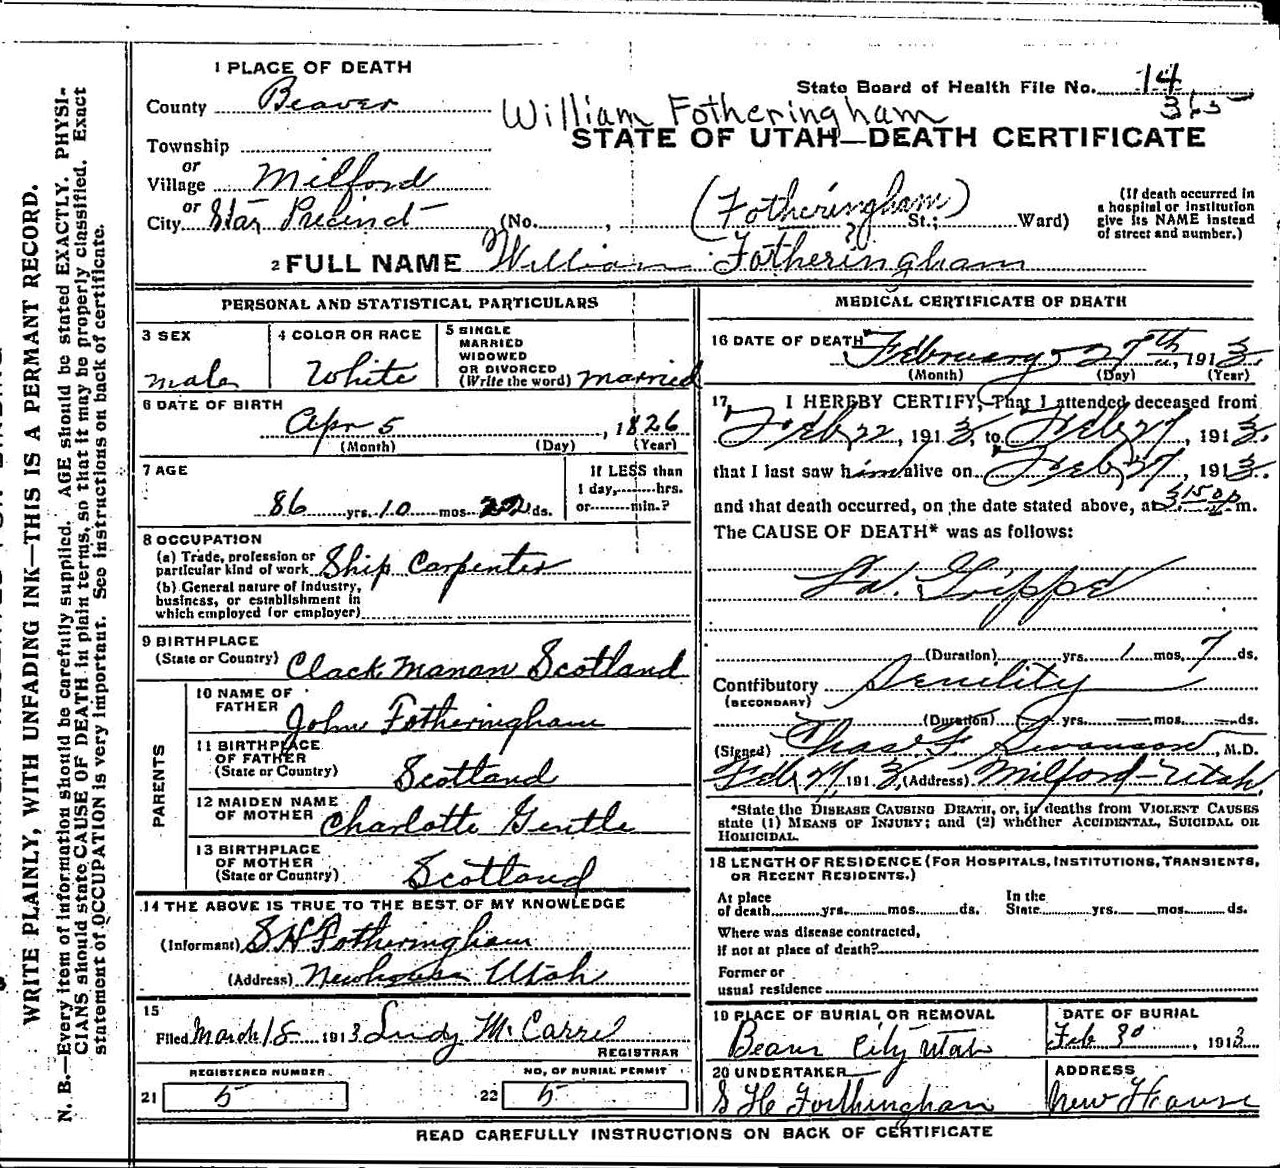 WRITE PLAINLY, WITH UNFADING INK—THIS IS A PERMANT RECORD.
N. B.—Every item of information should be carefully supplied. AGE should be stated EXACTLY. PHYSI-
CIANS should state CAUSE OF DEATH in plain terms, so that it may be properly classified. Exact
statement of OCCUPATION is very important. See instructions on back of certificate.
1 PLACE OF DEATH
County Beaver
Township
or
Village Milford
or
City Star Precinct
State Board of Health File No. 14
365
William Fotheringham
STATE OF UTAH—DEATH CERTIFICATE
(No. , (Fotheringham) St.; Ward)
?
(If death occurred in
a hospital or institution
give its NAME instead
of street and number.)
2 FULL NAME William Fotheringham
PERSONAL AND STATISTICAL PARTICULARS
3 SEX
male
4 COLOR OR RACE
White
5 SINGLE
MARRIED
WIDOWED
OR DIVORCED
(Write the word) married
6 DATE OF BIRTH
Apr 5, 1826
(Month) (Day) (Year)
7 AGE
86 yrs. 10 mos. 22 ds.
If LESS than
1 day, hrs.
or min.?
8 OCCUPATION
(a) Trade, profession or
particular kind of work Ship Carpenter
(b) General nature of industry,
business, or establishment in
which employed (or employer)
9 BIRTHPLACE
(State or Country) Clack Manan Scotland
PARENTS
10 NAME OF
FATHER John Fotheringham
11 BIRTHPLACE
OF FATHER
(State or Country) Scotland
12 MAIDEN NAME
OF MOTHER Charlotte Gentle
13 BIRTHPLACE
OF MOTHER
(State or Country) Scotland
14 THE ABOVE IS TRUE TO THE BEST OF MY KNOWLEDGE
(Informant) S H Fotheringham
(Address) Newhouse Utah
15
Filed March 15 1913 McCarrel
REGISTRAR
REGISTERED NUMBER
21 5
NO. OF BURIAL PERMIT
22 5
MEDICAL CERTIFICATE OF DEATH
16 DATE OF DEATH
February 27th, 1913.
(Month) (Day) (Year)
17, I HEREBY CERTIFY, That I attended deceased from
Feb 22, 1913, to Feb 27, 1913.
that I last saw him alive on Feb 27, 1913.
and that death occurred, on the date stated above, at 3 15 p m.
The CAUSE OF DEATH* was as follows:
La. Grippe
(Duration) yrs. 1 mos. 7 ds.
Contributory Senility
(SECONDARY)
(Duration) yrs. — mos. — ds.
(Signed) Chas F Swanson, M.D.
Feb 27, 1913, (Address) Milford-Utah
*State the DISEASE CAUSING DEATH, or, in deaths from VIOLENT CAUSES
state (1) MEANS OF INJURY; and (2) whether ACCIDENTAL, SUICIDAL OR
HOMICIDAL.
18 LENGTH OF RESIDENCE (FOR HOSPITALS, INSTITUTIONS, TRANSIENTS,
OR RECENT RESIDENTS.)
At place
of death yrs. mos. ds.
In the
State yrs. mos. ds.
Where was disease contracted,
if not at place of death?
Former or
usual residence
19 PLACE OF BURIAL OR REMOVAL
Beaver City Utah
DATE OF BURIAL
Feb 30, 1913
20 UNDERTAKER
S H Fothingham
ADDRESS
New House
READ CAREFULLY INSTRUCTIONS ON BACK OF CERTIFICATE